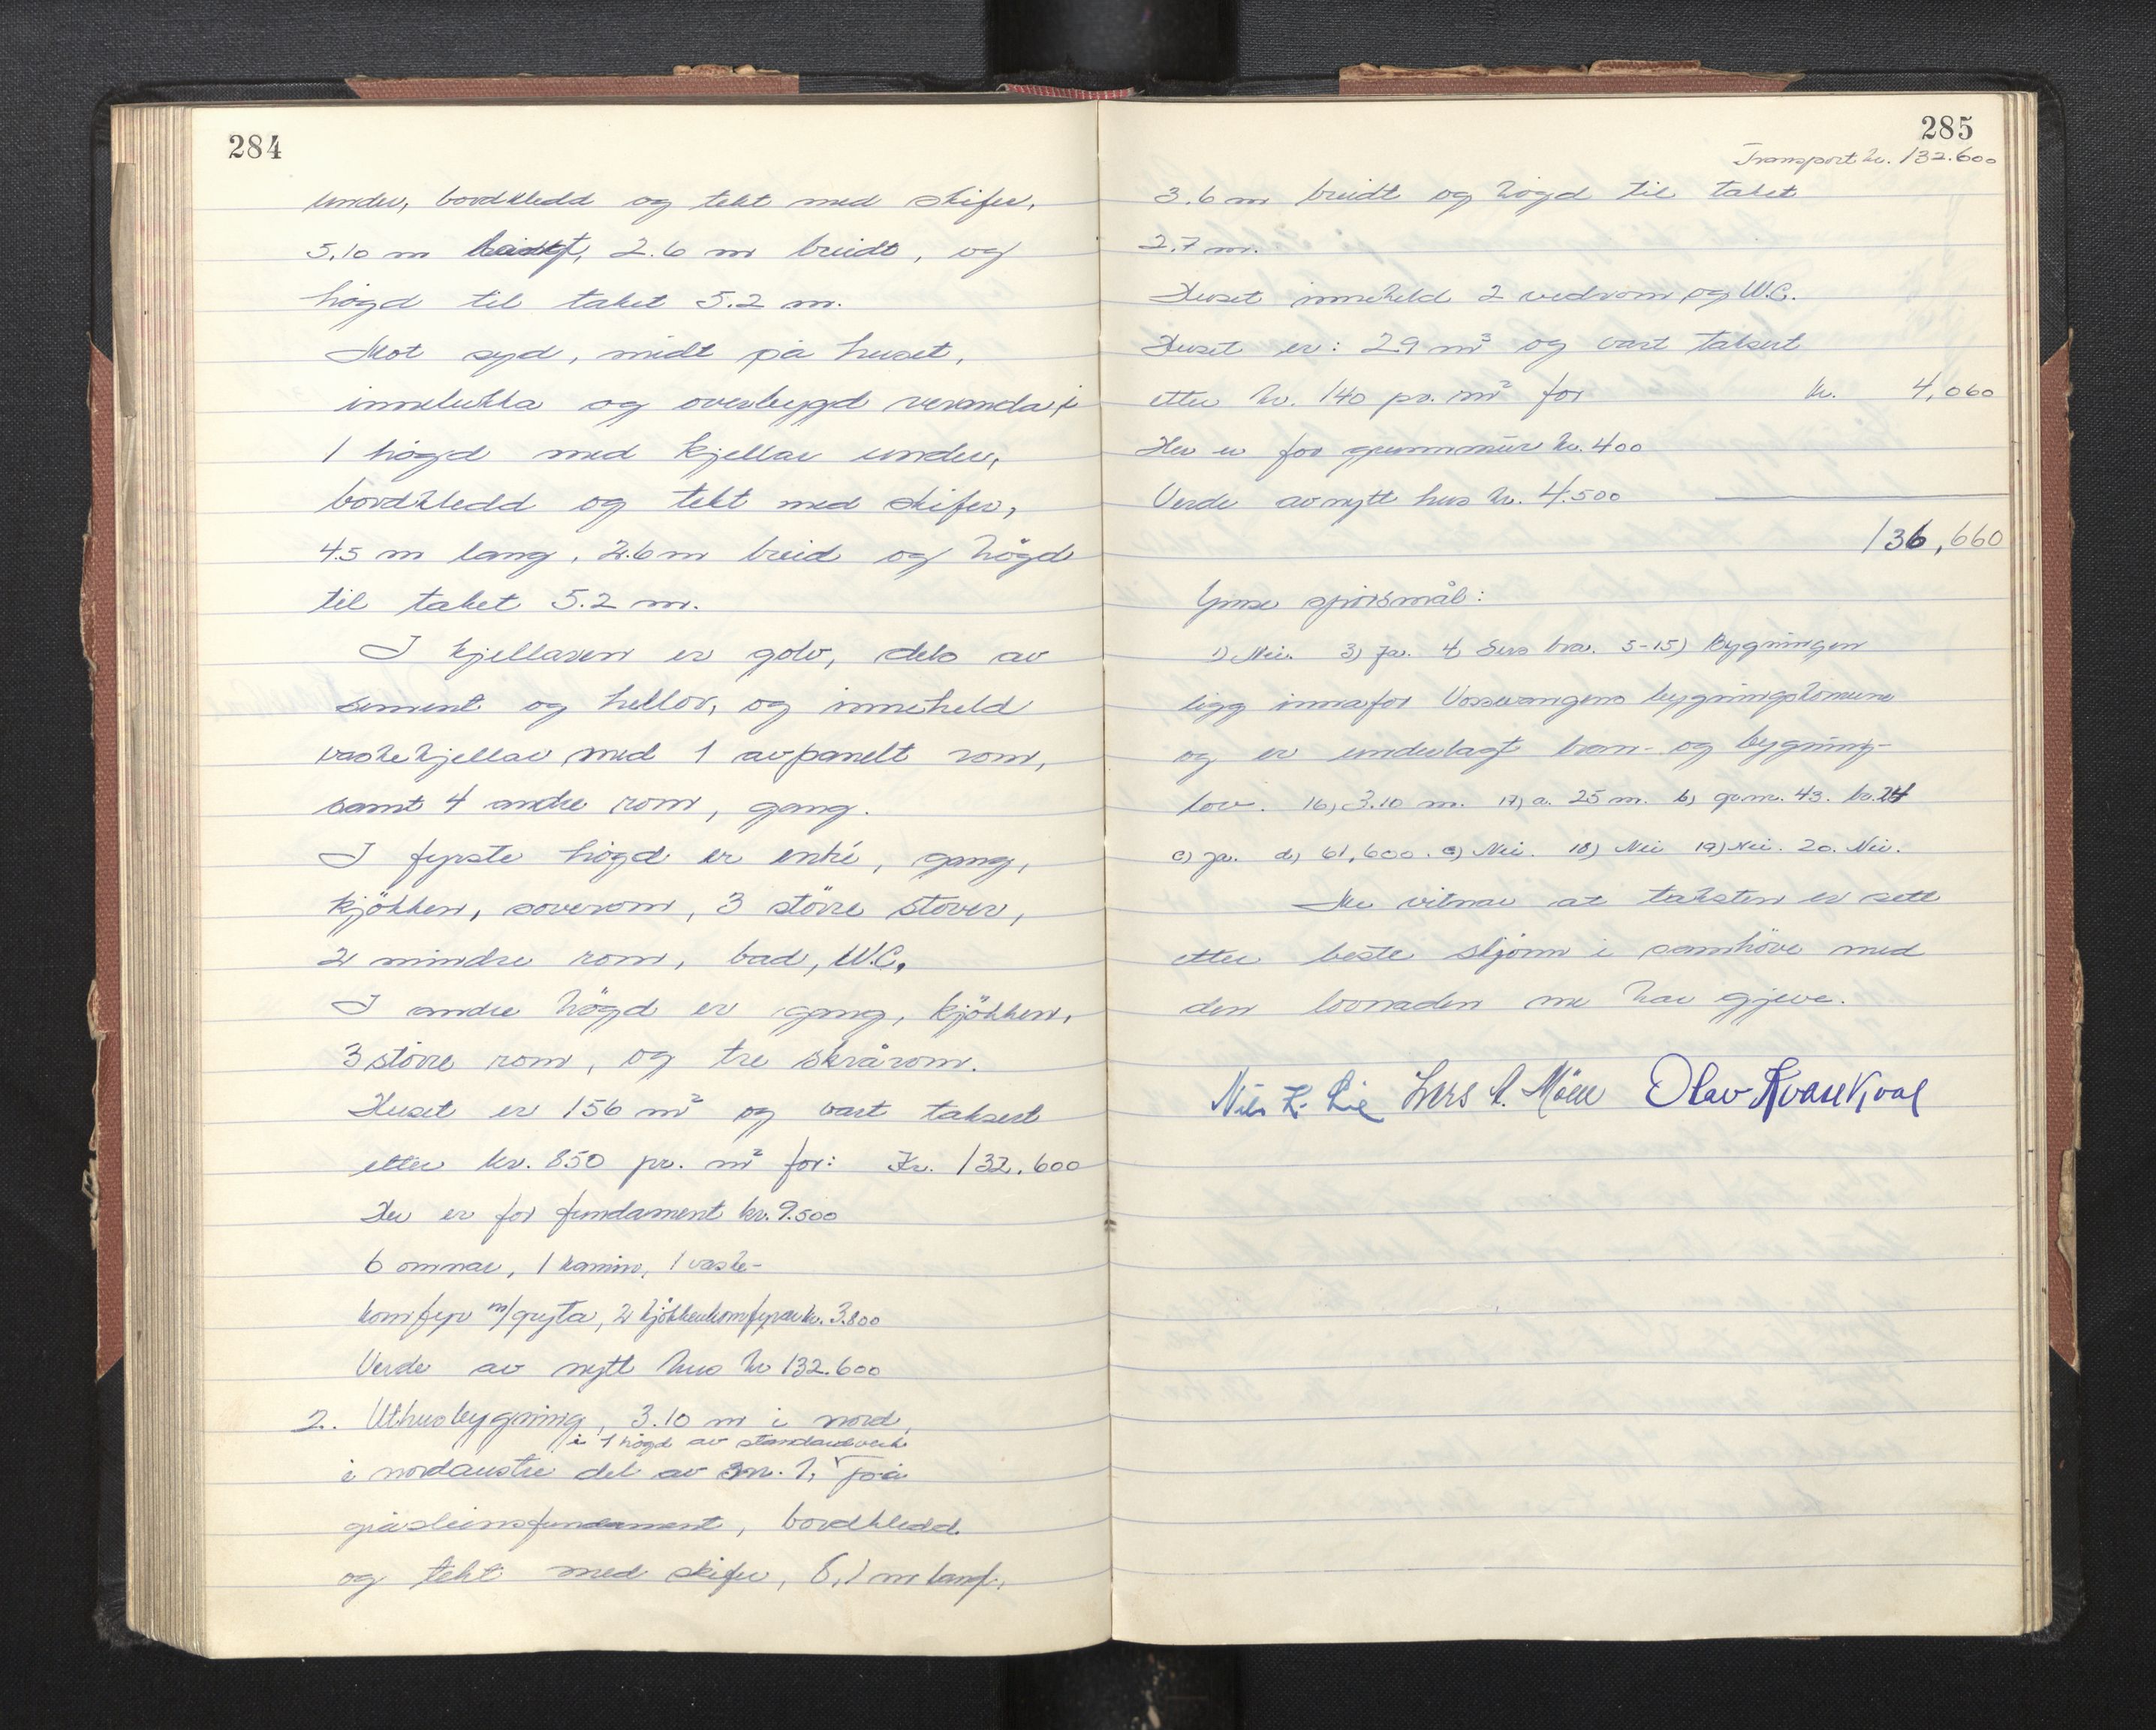 284
under, bordkledd og tekt med skifer,
5.10 m langt, 2.6 m breidt, og
högd til taket 5.2 m.
Mot syd, midt på huset,
innelukka og overbygd veranda i
1 högd med kjellar under,
bordkledd og tekt med skifer,
4.5 m lang, 2.6 m breid og högd
til taket 5.2 m.
I kjellaren er golv, dels av
sement og hellor, og inneheld
vaskekjellar med 1 avpanelt rom,
samt 4 andre rom, gang.
I fyrste högd er entré, gang,
kjökken, soverom, 3 större stover,
2 mindre rom, bad, W.C.
I andre högd er gang, kjökken,
3 större rom, og tre skrårom.
Huset er 156 m² og vart taksert
etter kr. 850 pr. m² for: Kr. 132.600
Her er for fundament kr. 9.500
6 omnar, 1 kamin, 1 vaske-
komfyr m/gryta, 2 kjökkenkomfyrar kr. 3.800
Verde av nytt hus kr 132.600
2. Uthusbygning, 3.10 m i nord,
i 1 högd av standardverk
i nordaustre del av nr. 1, på
gråsteinsfundament, bordkledd
og tekt med skifer, 8,1 m lang,
285
Transport kr. 132.600
3.6 m breidt og högd til taket
2.7 m.
Huset inneheld 2 vedrom og W.C.
Huset er: 29 m³ og vart taksert
etter kr. 140 pr. m² for kr. 4,060
Her er for grunnmur kr. 400
Verde av nytt hus kr. 4.500
136,660
Ymse spörsmål:
1) Nei. 3) Ja. 4) Sers bra. 5-15) Bygningen
ligg innafor Vossevangens bygningskomune
og er underlagt bran- og bygning-
lov. 16) 3.10 m. 17) a. 25 m. b) g.nr. 43. br. 24
c) Ja. d) 61,600. e) Nei. 18) Nei 19) Nei. 20. Nei.
Me vitnar at taksten er sett
etter beste skjönn i samhöve med
den lovnaden me har gjeve.
Nils K. Lie Lars L. Möen Olav Kvarekval